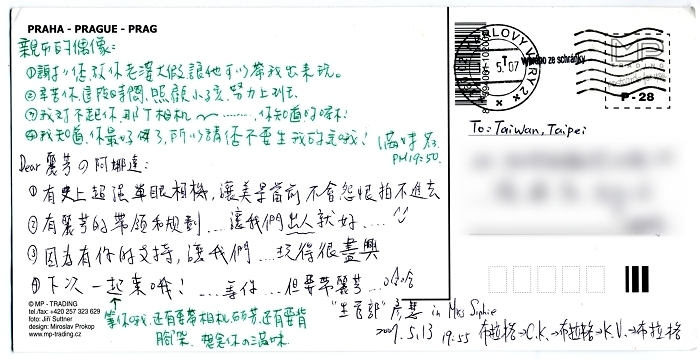 PRAHA - PRAGUE - PRAG
親愛的偶像:
①謝謝您放你老婆大假讓他可以帶我出來玩。
②辛苦你這段時間,照顧小孩,努力上班
③我對不起你那丁相機～………,你知道的嘛!
④我知道你最好了,所以請你不要生我的氣哦!
PM19:50.
Dear 麗芳の阿娜達:
①有史上超强單眼相機,讓美景當前不會怨恨拍不進去
②有麗芳的帶領和規劃....讓我們出人就好....
③因為有你的支持,讓我們....玩得很盡興
④下次一起來哦! ....等你...但要帶麗芳...哈哈
等你哦,還有要帶相機,還有要背
腳架. 想念你の滋味
"生管部" 彥慧 in Mks Sophie
2007.5.13 19:55 布拉格→C.K.→布拉格→K.V.→布拉格
© MP - TRADING
tel./fax: +420 257 323 629
foto: Jiří Suttner
design: Miroslav Prokop
www.mp-trading.cz
KARLOVY VARY 2
5. 07
Vybráno ze schránky
MP
P - 28
To: Taiwan, Taipei